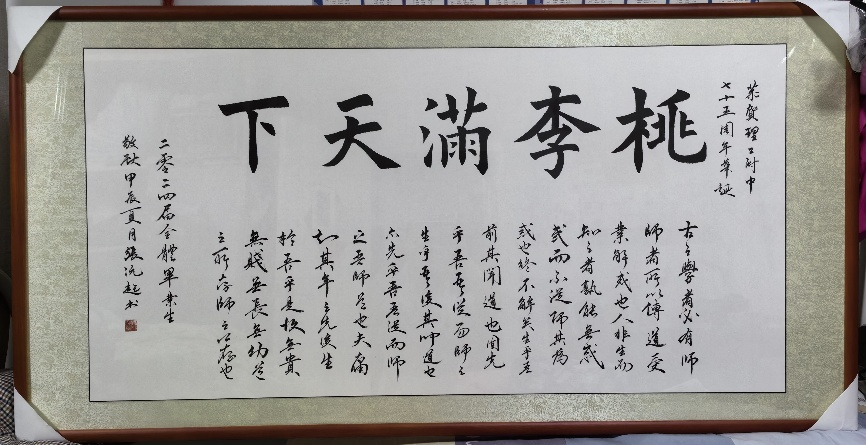 恭賀理工附中
七十五周年華誕
桃李滿天下
古之學者必有師
師者所以傳道受
業解惑也人非生而
知之者孰能無惑
惑而不從師其爲
惑也終不解矣生乎吾
前其聞道也固先
乎吾吾從而師之
生乎吾後其聞道也
亦先乎吾吾從而師
之吾師道也夫庸
知其年之先後生
於吾乎是故無貴
無賤無長無幼道
之所存師之所存也
二零二四届全體畢業生
敬獻甲辰夏月張沅起书